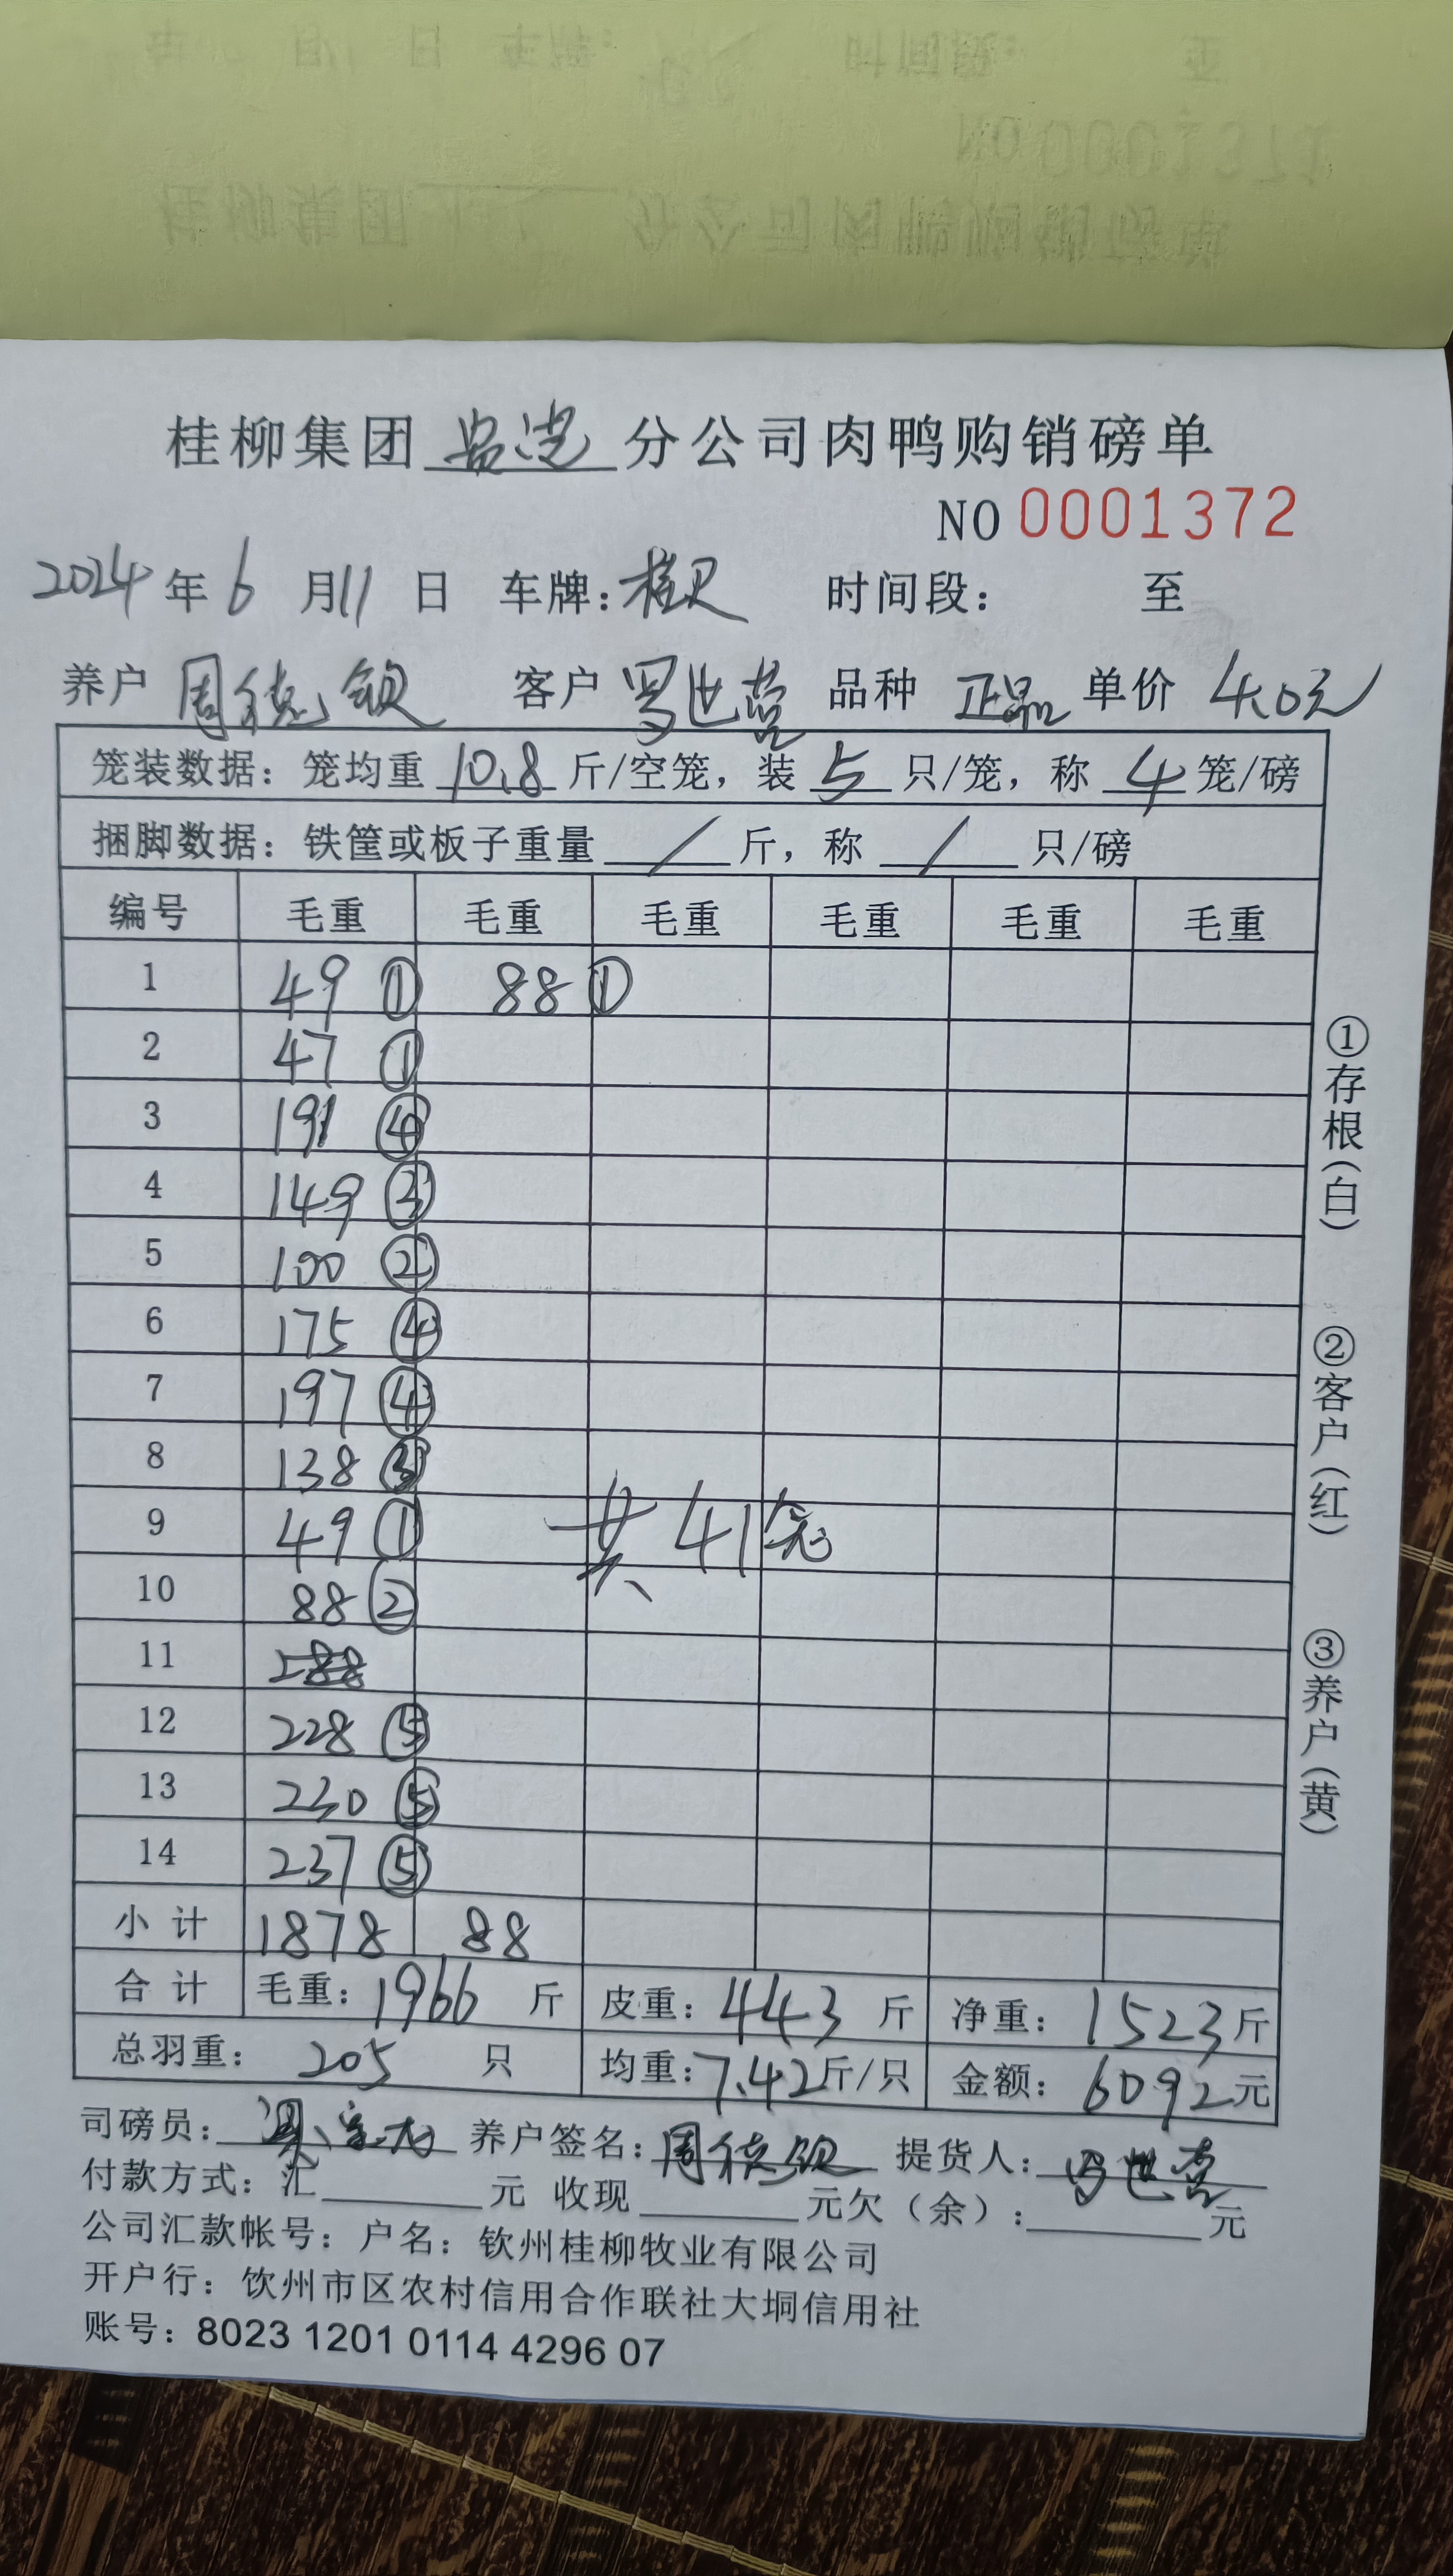 桂柳集团 分公司肉鸭购销磅单
NO 0001372
2024 年 6 月 11 日 车牌: 时间段: 至
养户 周德钦 客户 罗世营 品种 正品 单价 4.0元
笼装数据: 笼均重 10.8 斤/空笼, 装 5 只/笼, 称 4 笼/磅
捆脚数据: 铁筐或板子重量 / 斤, 称 / 只/磅
编号 毛重 毛重 毛重 毛重 毛重 毛重
1 49 ① 88 ①
2 47 ①
3 191 ④
4 149 ③
5 100 ②
6 175 ④
7 197 ④
8 138 ③
9 49 ① 共 41
10 88 ②
11 288
12 228 ⑤
13 230 ⑤
14 237 ⑤
小 计 1878 88
合 计 毛重: 1966 斤 皮重: 443 斤 净重: 1523 斤
总羽重: 205 只 均重: 7.42 斤/只 金额: 6092 元
司磅员: 养户签名: 周德钦 提货人: 罗世营
付款方式: 汇 元 收现 元欠 (余) : 元
公司汇款帐号: 户名: 钦州桂柳牧业有限公司
开户行: 饮州市区农村信用合作联社大垌信用社
账号: 8023 1201 0114 4296 07
①存根(白)
②客户(红)
③养户(黄)